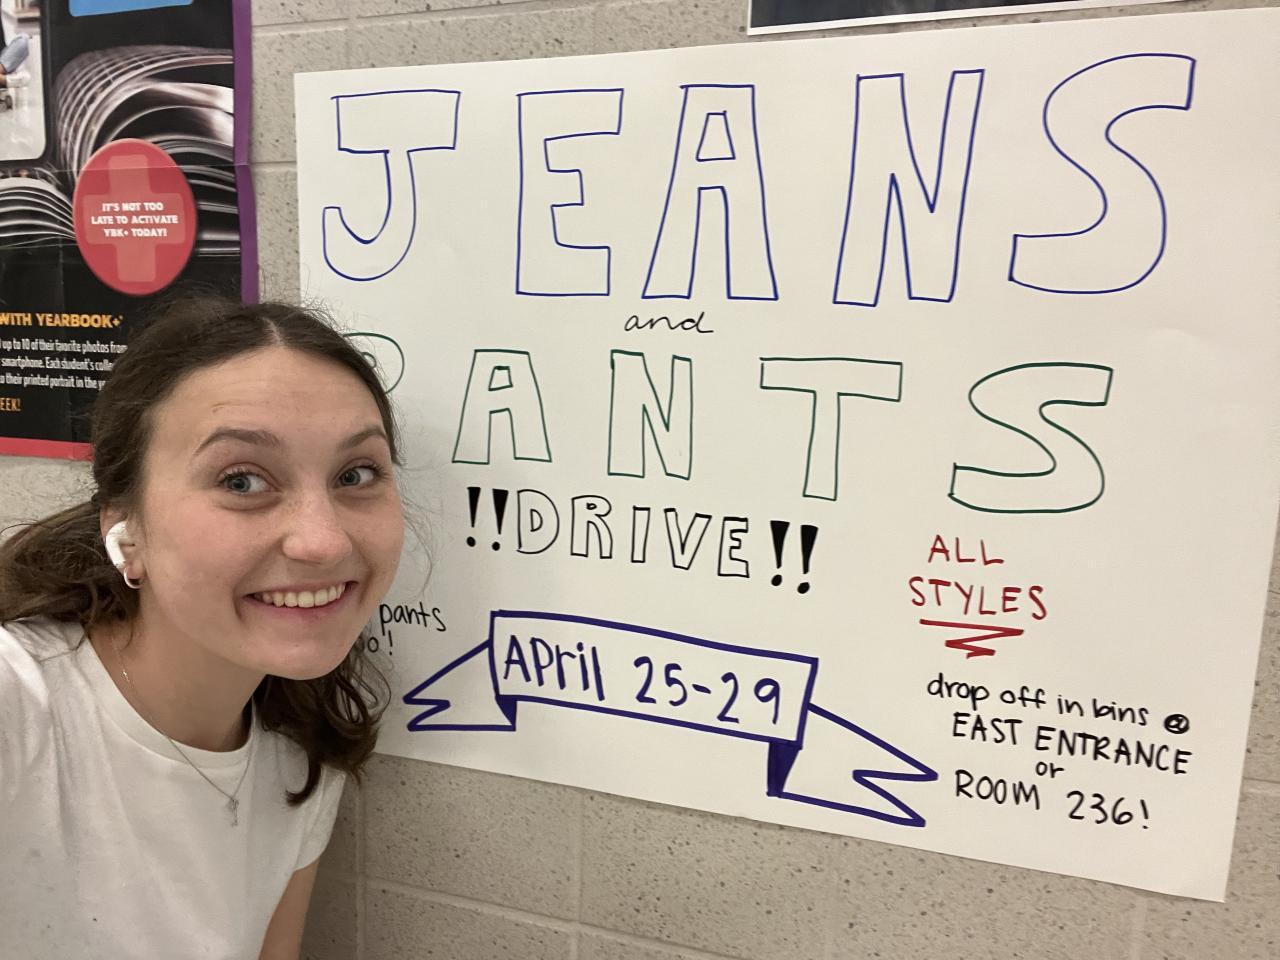 IT'S NOT TOO
LATE TO ACTIVATE
YBK+ TODAY!
WITH YEARBOOK+
up to 10 of their favorite photos from
smartphone. Each student's
their printed portrait in the
JEANS
and
PANTS
!!DRIVE!!
ALL
STYLES
pants
April 25-29
drop off in bins @
EAST ENTRANCE
or
ROOM 236!